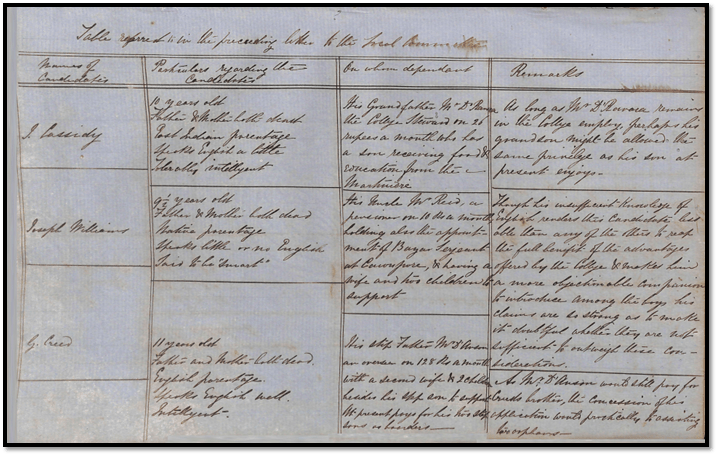 Table referred to in the preceding letter to the Local Committee
Names of
Candidates
Particulars regarding the
Candidates
On whom dependant
Remarks
J. Cassidy
10 years old
Father & Mother both dead
East Indian parentage
Speaks English a little
Tolerably intelligent
His Grandfather Mr
the College Steward on 26
rupees a month who has
a son receiving food &
education from the
Martiniere
As long as Mr remains
in the College employ, perhaps his
grandson might be allowed the
same privilege as his son at
present enjoys.
Joseph Williams
9½ years old
Father & Mother both dead
Native parentage
Speaks little or no English
Said to be "smart"
His Uncle Mr Reid, a
pensioner on 10 Rs a month
holding also the appoint-
ment of Bazar Serjeant
at Cawnpore, & having a
wife and two children to
support
Though his insufficient knowledge of
English renders this Candidate less
able than any of the others to reap
the full benefit of the advantages
offered by the College & makes him
a more objectionable companion
to introduce among the boys his
claims are so strong as to make
it doubtful whether they are not
sufficient to outweigh these con-
siderations.
G. Creed
11 years old
Father and Mother both dead.
English parentage.
Speaks English well.
Intelligent.
His step Father Mr
an overseer on 128 Rs a month
with a second wife & 2 children
besides his step son to support
At present pays for his two step
sons as boarders
As Mr would still pay for
Creeds brother, the concession of his
application would practically be assisting
two orphans